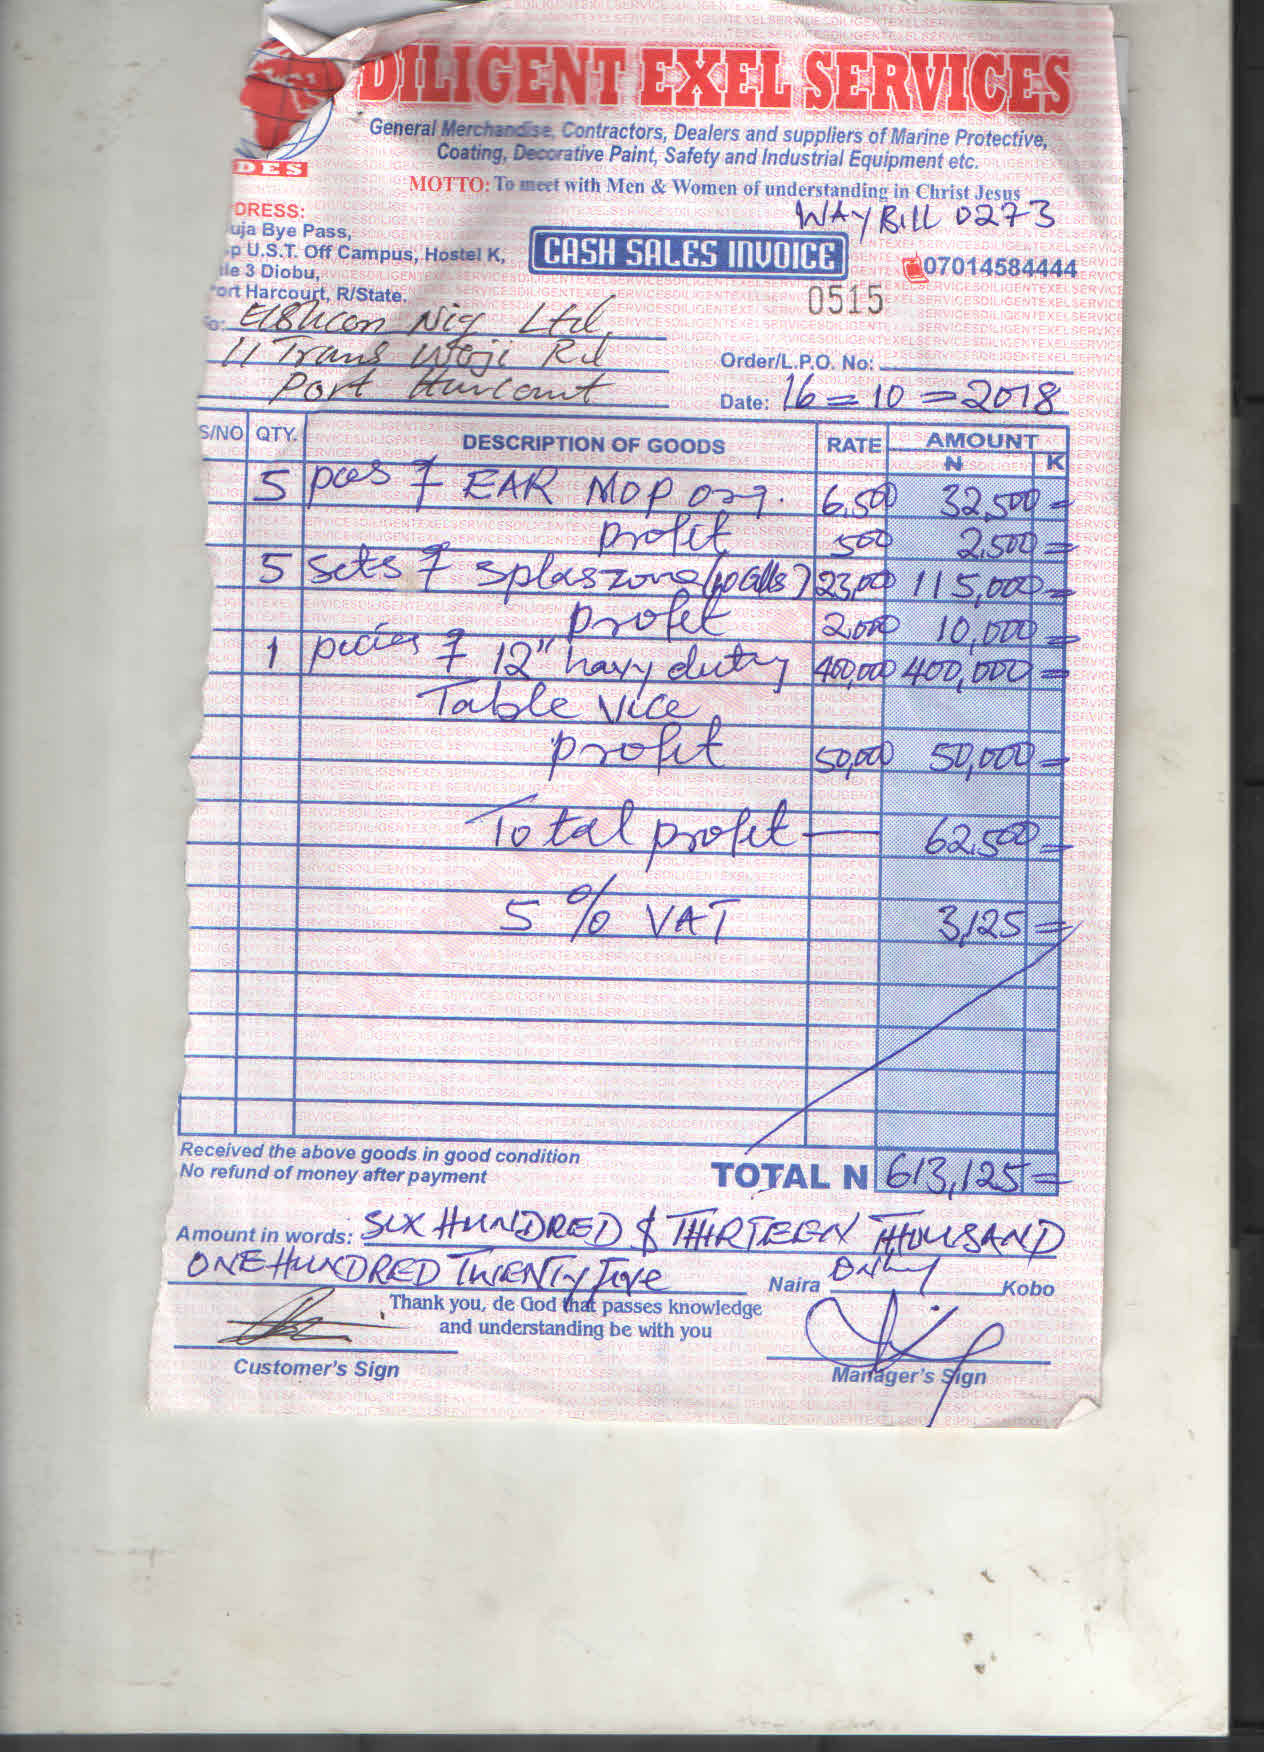 DILIGENT EXEL SERVICES
General Merchandise, Contractors, Dealers and suppliers of Marine Protective,
Coating, Decorative Paint, Safety and Industrial Equipment etc.
DES
MOTTO: To meet with Men & Women of understanding in Christ Jesus
WAYBILL 0273
DRESS:
uja Bye Pass,
p U.S.T. Off Campus, Hostel K,
ile 3 Diobu,
ort Harcourt, R/State.
CASH SALES INVOICE
07014584444
0515
Nig Ltd.
11 Trans Woji Rd
Port Harcourt
Order/L.P.O. No:
Date: 16=10=2018
S/NO QTY. DESCRIPTION OF GOODS RATE AMOUNT
N K
5 pces of EAR MOP org. 6,500 32,500=
profit 500 2,500=
5 sets of splaszone 23,000 115,000=
profit 2,000 10,000=
1 pecies of 12" havy duty 400,000 400,000=
Table vice
profit 50,000 50,000=
Total profit 62,500=
5 % VAT 3,125=
Received the above goods in good condition
No refund of money after payment
TOTAL N 613,125=
Amount in words: SIX HUNDRED & THIRTEEN THOUSAND
ONE HUNDRED TWENTY five Naira Only Kobo
Thank you, de God that passes knowledge
and understanding be with you
Customer's Sign
Manager's Sign